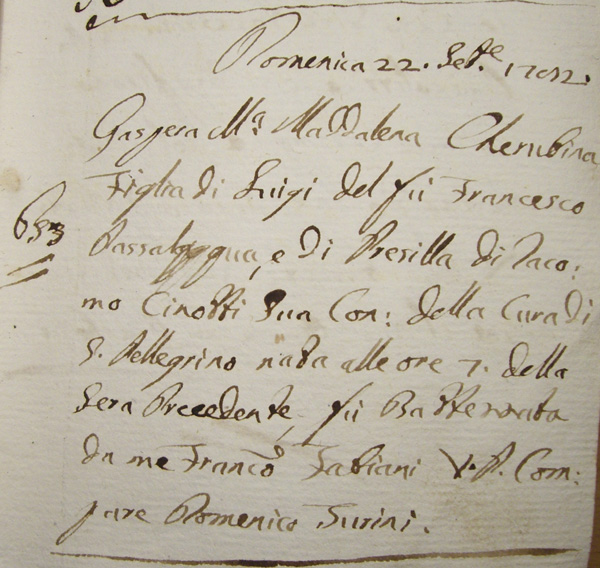 Domenica 22. Set.e
Gaspera M.a Maddalena Cherubina
Figlia di Luigi del fù Francesco
653
Passalacqua, e di Presilla di Jaco:
mo Cinotti Sua Con: della Cura di
S. Pellegrino nata alle ore 7. della
Sera Precedente, fù Battezzata
da me Franc.o Fabiani V.P. Com:
pare Domenico Turini.